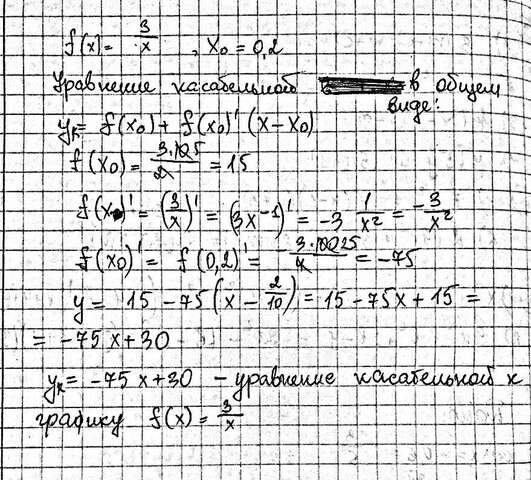 f(x) = 3/x , x₀ = 0,2
Уравнение касательной в общем
виде:
yₖ = f(x₀) + f(x₀)' (x - x₀)
f(x₀) = 3·10 5/2 = 15
f(x)' = (3/x)' = (3x⁻¹)' = -3 1/x² = -3/x²
f(x₀)' = f(0,2)' = - 3·100 25/4 = -75
y = 15 - 75 (x - 2/10) = 15 - 75x + 15 =
= -75x + 30
yₖ = -75x + 30 - уравнение касательной к
графику f(x) = 3/x